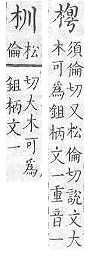 須倫切又松倫切說文大
木可為鉏柄文一重音一
松
倫
切大木可為
鉏柄文一